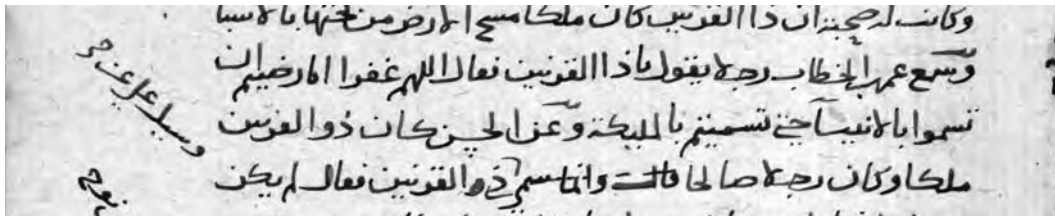 وكانت له صحبة ان ذا القرنين كان ملكا مسح الارض من تحتها بالاسبا
وسمع عمر بن الخطاب رجلا يقول ياذا القرنين فقال اللهم غفرا اما رضيتم ان
تسموا بالانبيا حتى تسميتم بالمليكة وعن الحسن كان ذو القرنين
ملكا وكان رجلا صالحا قالت وانما سمي ذو القرنين فقال لم يكن
وسيل على عن
نوح